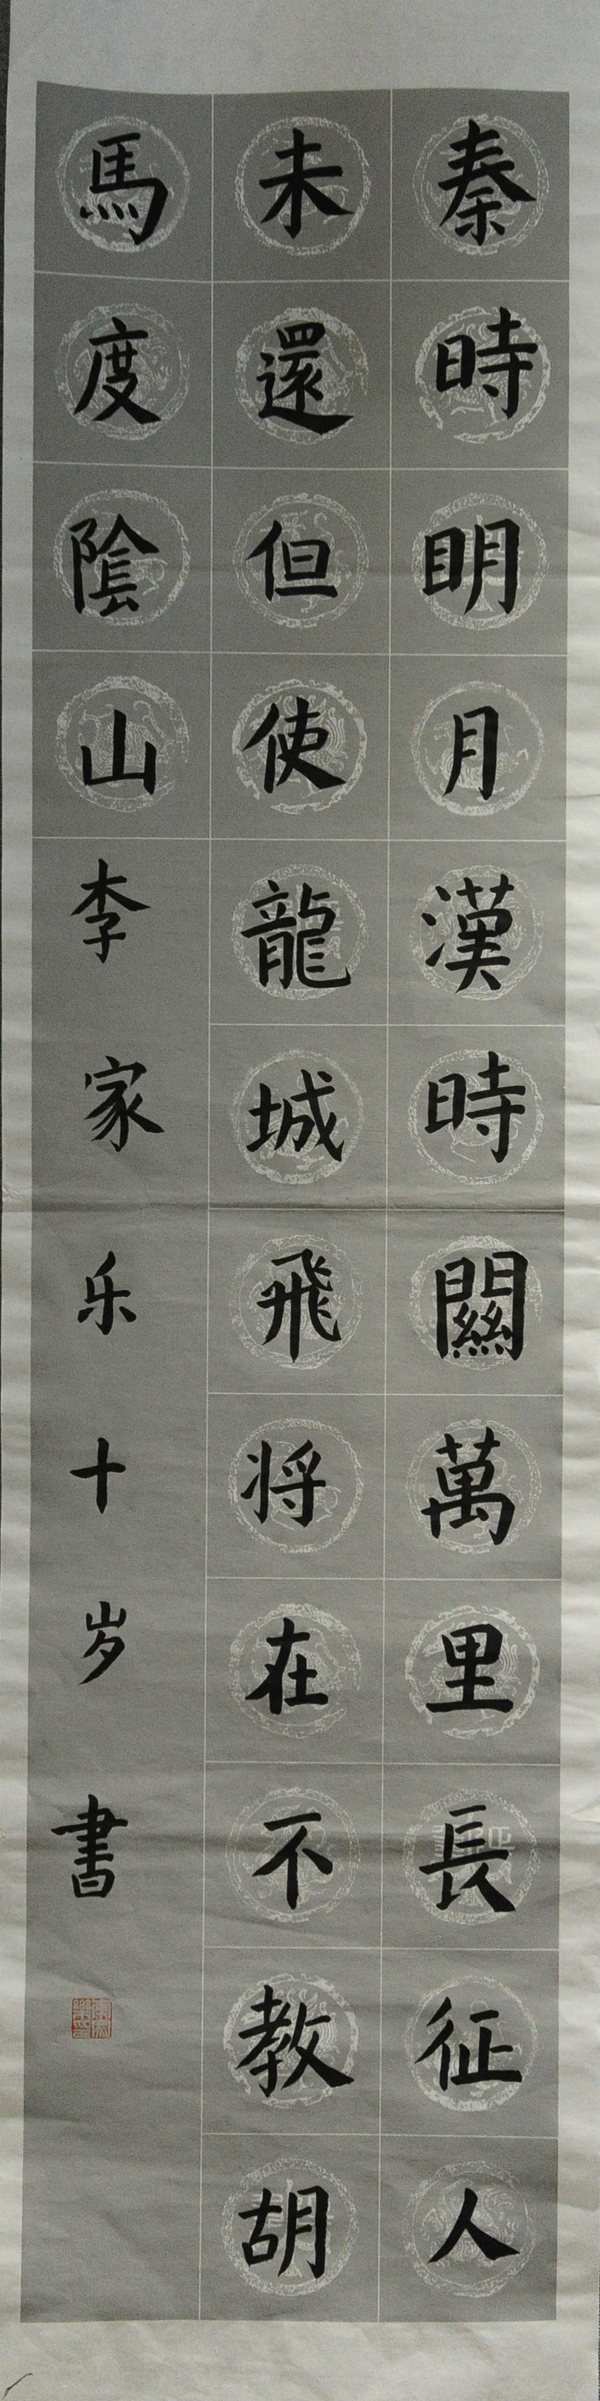 秦時明月漢時關萬里長征人
未還但使龍城飛将在不教胡
馬度陰山李家乐十岁書